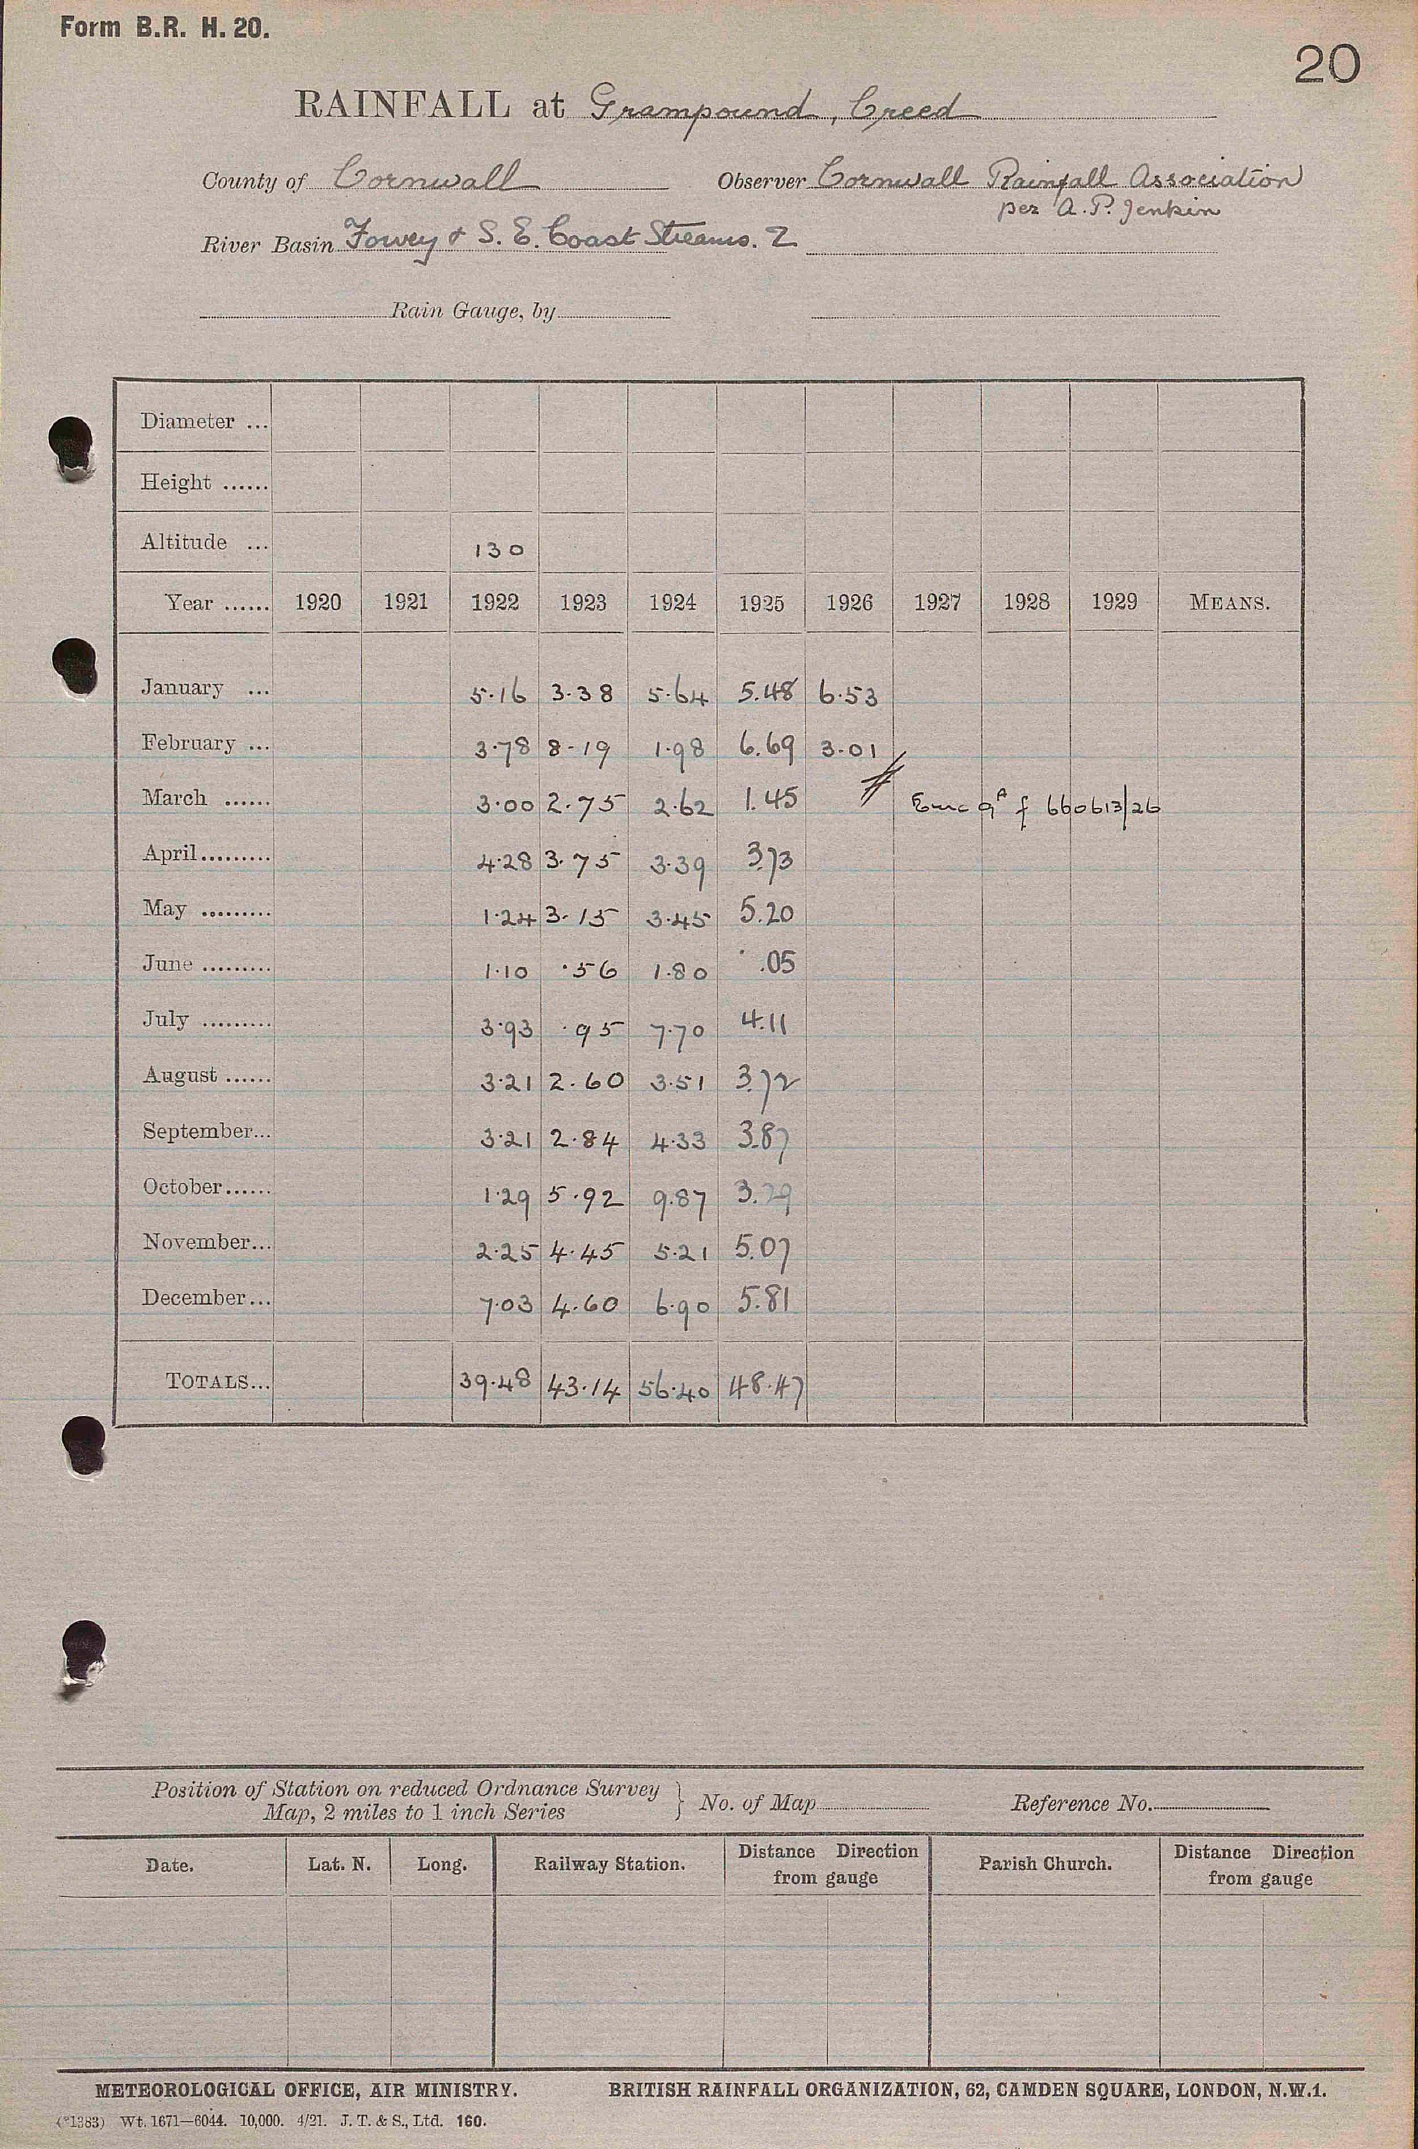 Form B.R. H. 20.
20
RAINFALL at Grampound, Creed
County of Cornwall Observer Cornwall Rainfall Association
per A. P. Jenkin
River Basin Fowey & S. E. Coast Streams. 2
Rain Gauge, by
Diameter ...
Height ......
Altitude ... 130
Year ...... 1920 1921 1922 1923 1924 1925 1926 1927 1928 1929 MEANS.
January ... 5.16 3.38 5.64 5.48 6.53
February ... 3.78 8.19 1.98 6.69 3.01
March ...... 3.00 2.75 2.62 1.45 660613/26
April ......... 4.28 3.75 3.39 3.73
May ......... 1.24 3.15 3.45 5.20
June ......... 1.10 .56 1.80 .05
July ......... 3.93 .95 7.70 4.11
August ...... 3.21 2.60 3.51 3.72
September... 3.21 2.84 4.33 3.87
October...... 1.29 5.92 9.87 3.29
November... 2.25 4.45 5.21 5.07
December... 7.03 4.60 6.90 5.81
TOTALS... 39.48 43.14 56.40 48.47
Position of Station on reduced Ordnance Survey
Map, 2 miles to 1 inch Series } No. of Map Reference No.
Date. Lat. N. Long. Railway Station. Distance Direction from gauge Parish Church. Distance Direction from gauge
METEOROLOGICAL OFFICE, AIR MINISTRY. BRITISH RAINFALL ORGANIZATION, 62, CAMDEN SQUARE, LONDON, N.W.1.
(*1383) Wt. 1671—6044. 10,000. 4/21. J. T. & S., Ltd. 160.